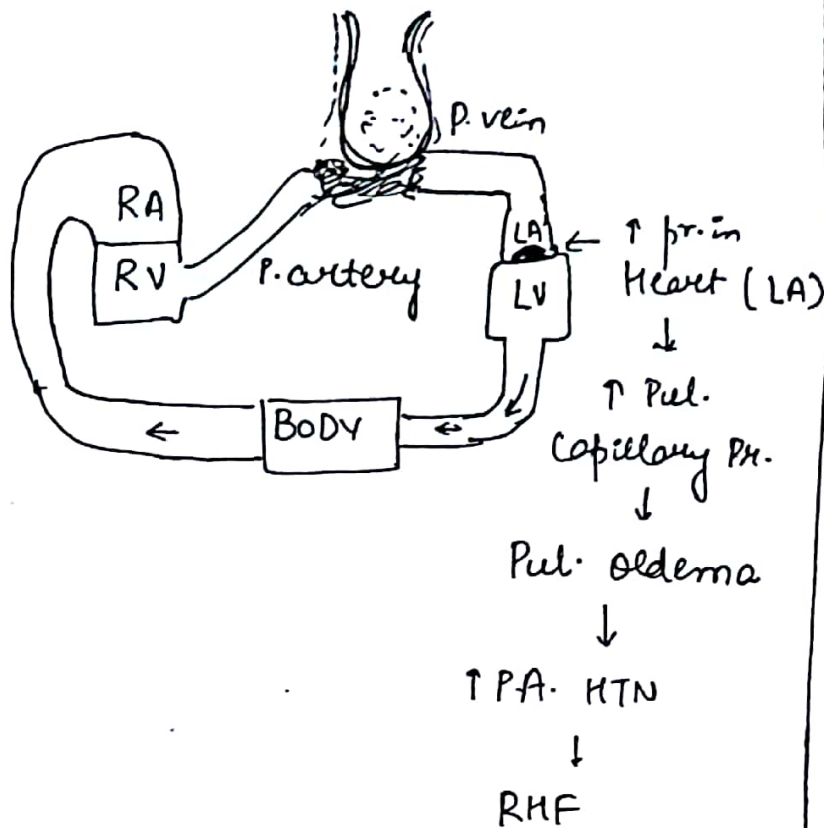 P. vein
RA
RV
P. artery
LA
LV
BODY
← ↑ pr. in
Heart (LA)
↓
↑ Pul.
Capillary Pr.
↓
Pul. oedema
↓
↑ P.A. HTN
↓
RHF